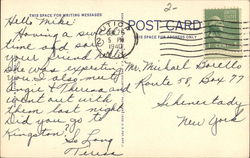 2-
THIS SPACE FOR WRITING MESSAGES
POST CARD
THIS SPACE FOR ADDRESS ONLY
Hello Mike:
Having a swell
time and saw
your friend
She was expecting
you. I also met
Angie & Theresa and
went out with
them last night.
Did you go to
Kingston?
So Long
5 PM
1940
Mr. Michael Borello
Route 58, Box 77
Schenectady
New York